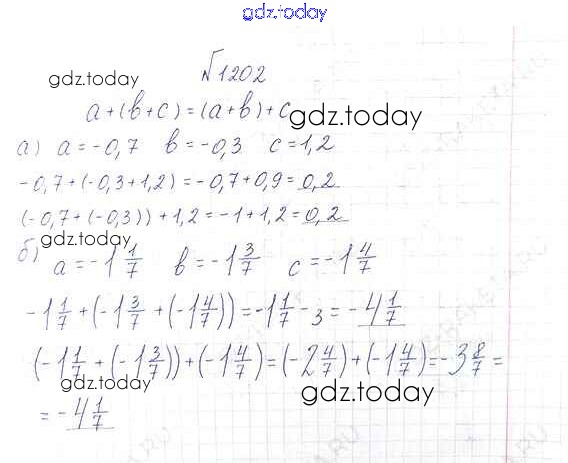 gdz.today
№1202
gdz.today
a+(b+c)=(a+b)+c
gdz.today
а) a=-0,7 b=-0,3 c=1,2
-0,7+(-0,3+1,2)=-0,7+0,9=0,2
(-0,7+(-0,3))+1,2=-1+1,2=0,2
gdz.today
б) a=-1 1/7 b=-1 3/7 c=-1 4/7
-1 1/7+(-1 3/7+(-1 4/7))=-1 1/7-3=-4 1/7
(-1 1/7+(-1 3/7))+(-1 4/7)=(-2 4/7)+(-1 4/7)=-3 8/7=
gdz.today
gdz.today
=-4 1/7